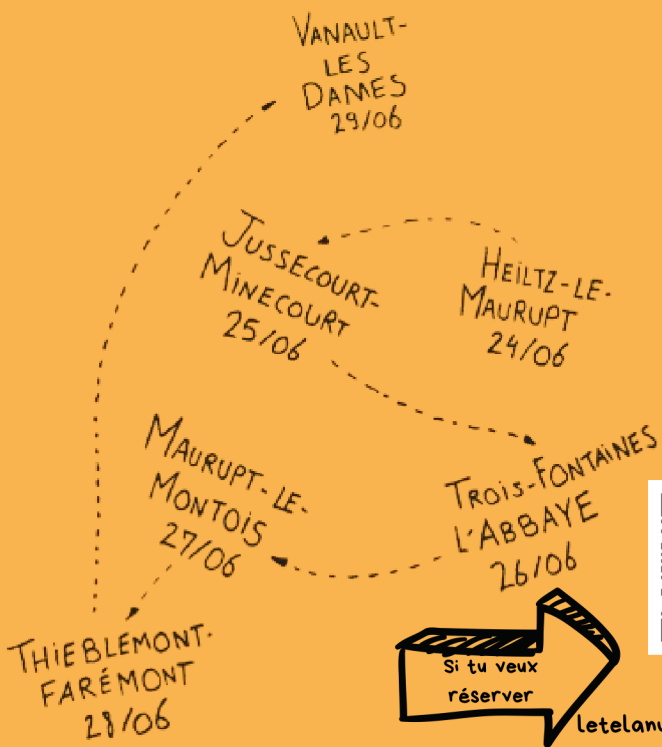 VANAULT-
LES
DAMES
29/06
JUSSECOURT-
MINECOURT
25/06
HEILTZ-LE-
MAURUPT
24/06
MAURUPT-LE-
MONTOIS
27/06
TROIS-FONTAINES
L'ABBAYE
26/06
THIEBLEMONT-
FARÉMONT
28/06
Si tu veux
réserver